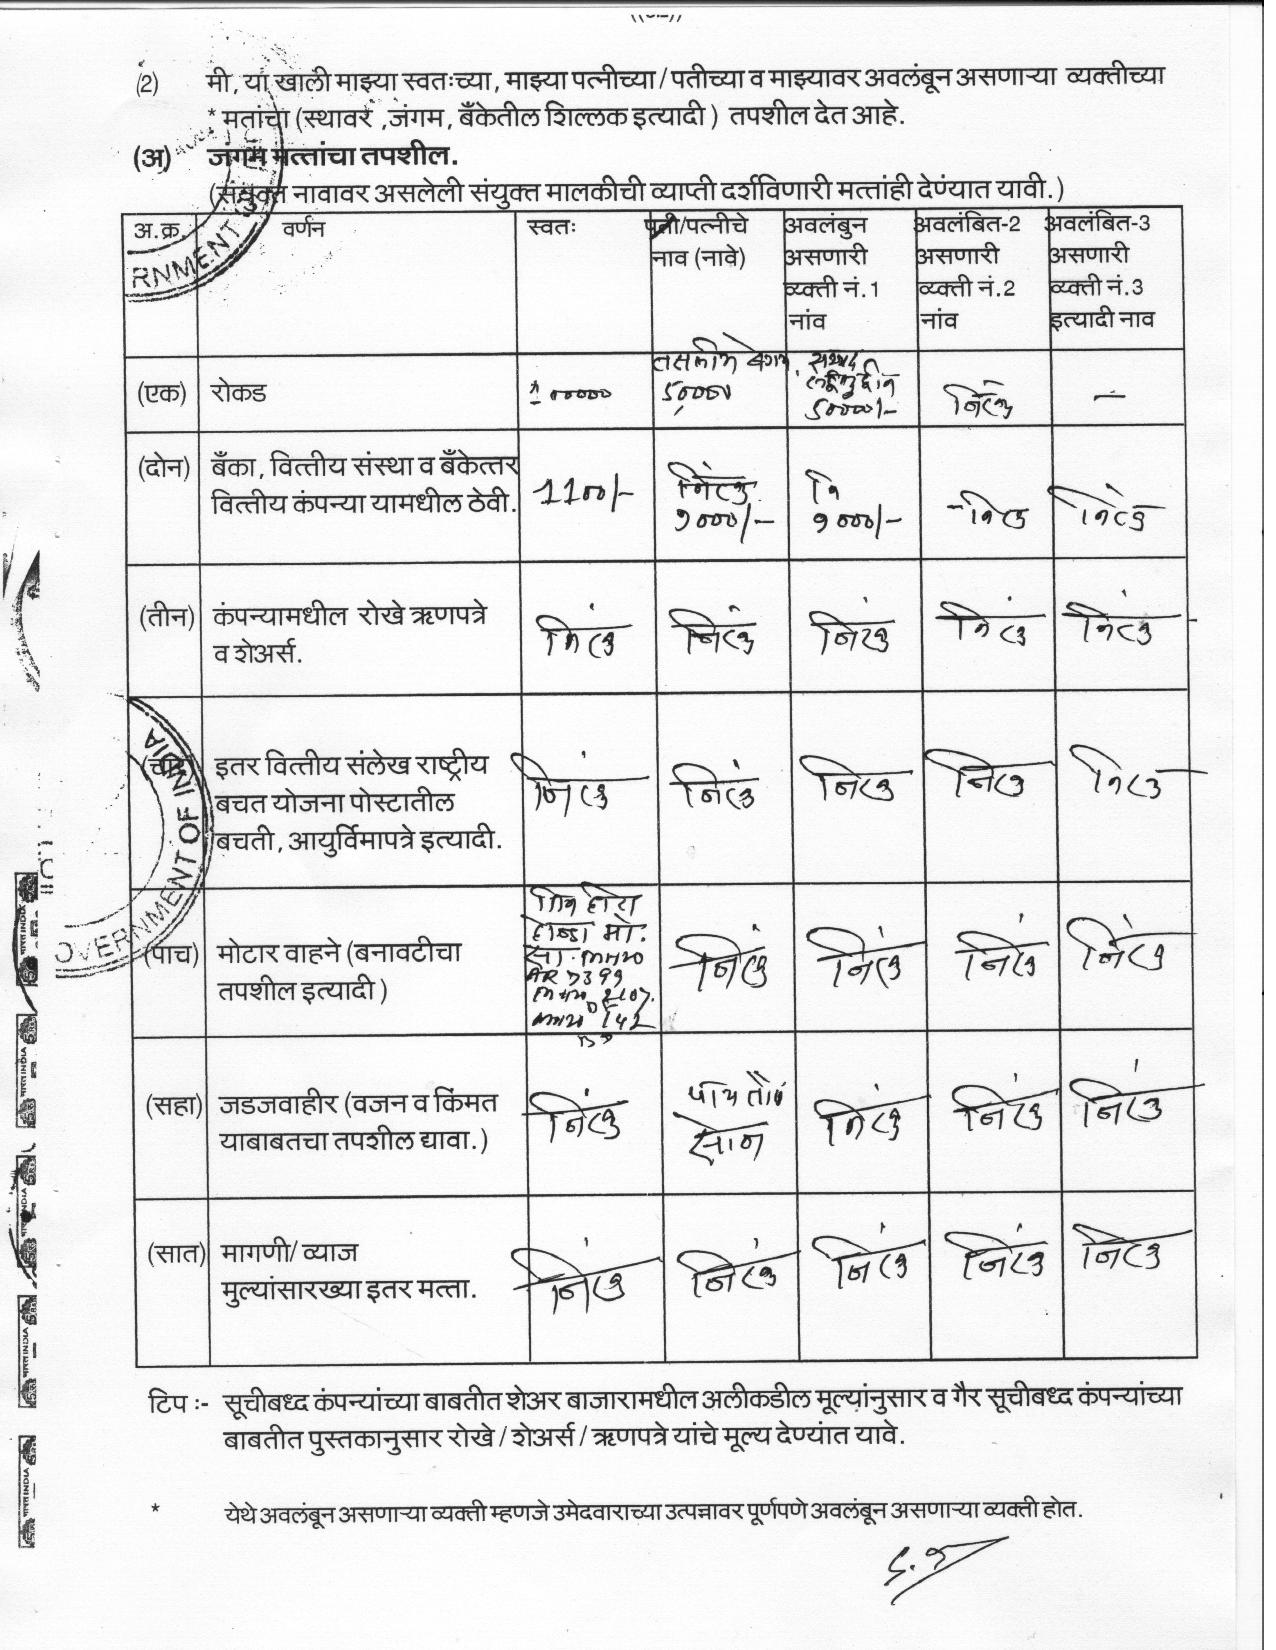 (2) मी, या खाली माझ्या स्वतःच्या, माझ्या पत्नीच्या / पतीच्या व माझ्यावर अवलंबून असणाऱ्या व्यक्तीच्या
* मतांचा (स्थावर ,जंगम , बँकेतील शिल्लक इत्यादी ) तपशील देत आहे.
(अ) जंगम मत्तांचा तपशील.
(संयुक्त नावावर असलेली संयुक्त मालकीची व्याप्ती दर्शविणारी मत्तांही देण्यात यावी.)
अ.क्र. वर्णन स्वतः पती/पत्नीचे अवलंबुन अवलंबित-2 अवलंबित-3
नाव (नावे) असणारी असणारी असणारी
व्यक्ती नं.1 व्यक्ती नं.2 व्यक्ती नं.3
नांव नांव इत्यादी नाव
तसलीम बेगम
(एक) रोकड 50000 50000/- निल —
(दोन) बँका, वित्तीय संस्था व बँकेत्तर निल नि
वित्तीय कंपन्या यामधील ठेवी. 1100/- १०००/- १०००/- निल निल
(तीन) कंपन्यामधील रोखे ऋणपत्रे निल निल निल निल निल
व शेअर्स.
(चार) इतर वित्तीय संलेख राष्ट्रीय निल निल निल निल निल
बचत योजना पोस्टातील
बचती, आयुर्विमापत्रे इत्यादी.
होन्डा मो.
(पाच) मोटार वाहने (बनावटीचा निल निल निल निल
तपशील इत्यादी)
(सहा) जडजवाहीर (वजन व किंमत निल पाच तोळे निल निल निल
याबाबतचा तपशील द्यावा.) सोन
(सात) मागणी/ व्याज निल निल निल निल निल
मुल्यांसारख्या इतर मत्ता.
टिप :- सूचीबध्द कंपन्यांच्या बाबतीत शेअर बाजारामधील अलीकडील मूल्यांनुसार व गैर सूचीबध्द कंपन्यांच्या
बाबतीत पुस्तकानुसार रोखे / शेअर्स / ऋणपत्रे यांचे मूल्य देण्यांत यावे.
* येथे अवलंबून असणाऱ्या व्यक्ती म्हणजे उमेदवाराच्या उत्पन्नावर पूर्णपणे अवलंबून असणाऱ्या व्यक्ती होत.
RNMENT
OVERNMENT OF INDIA
भारत INDIA
भारत INDIA
भारत INDIA
भारत INDIA
भारत INDIA